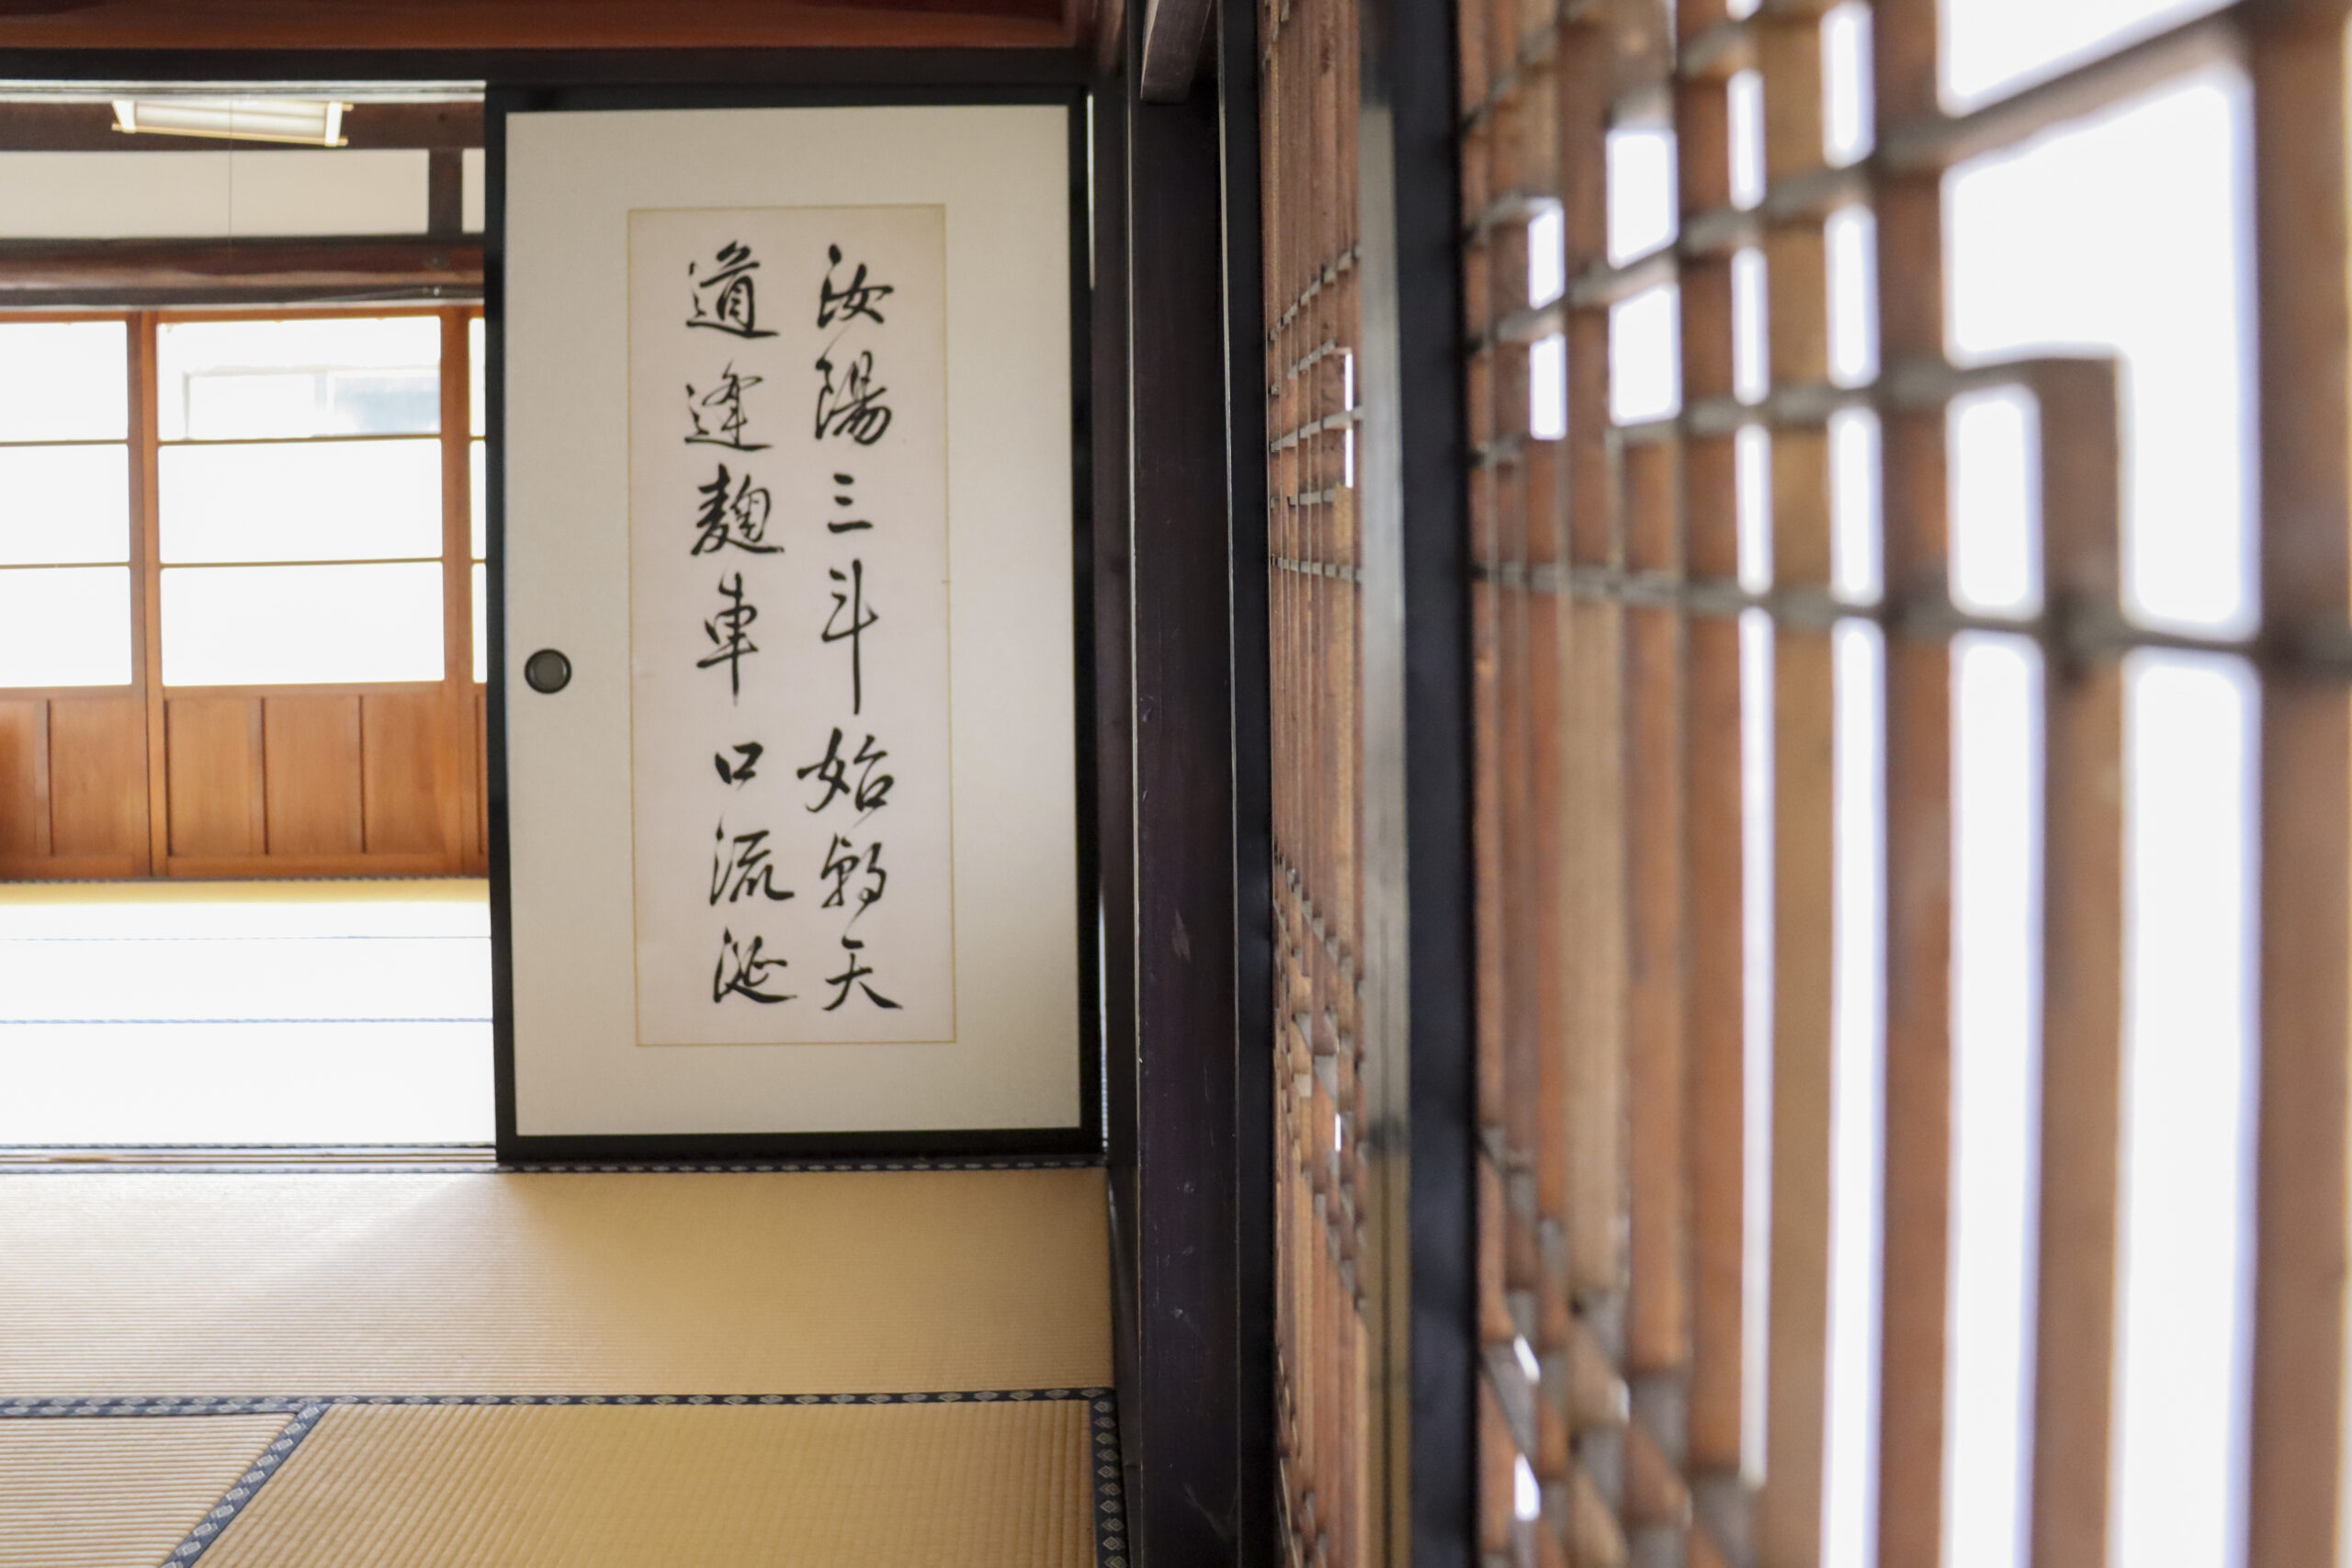 汝陽三斗始朝天
道逢麹車口流涎